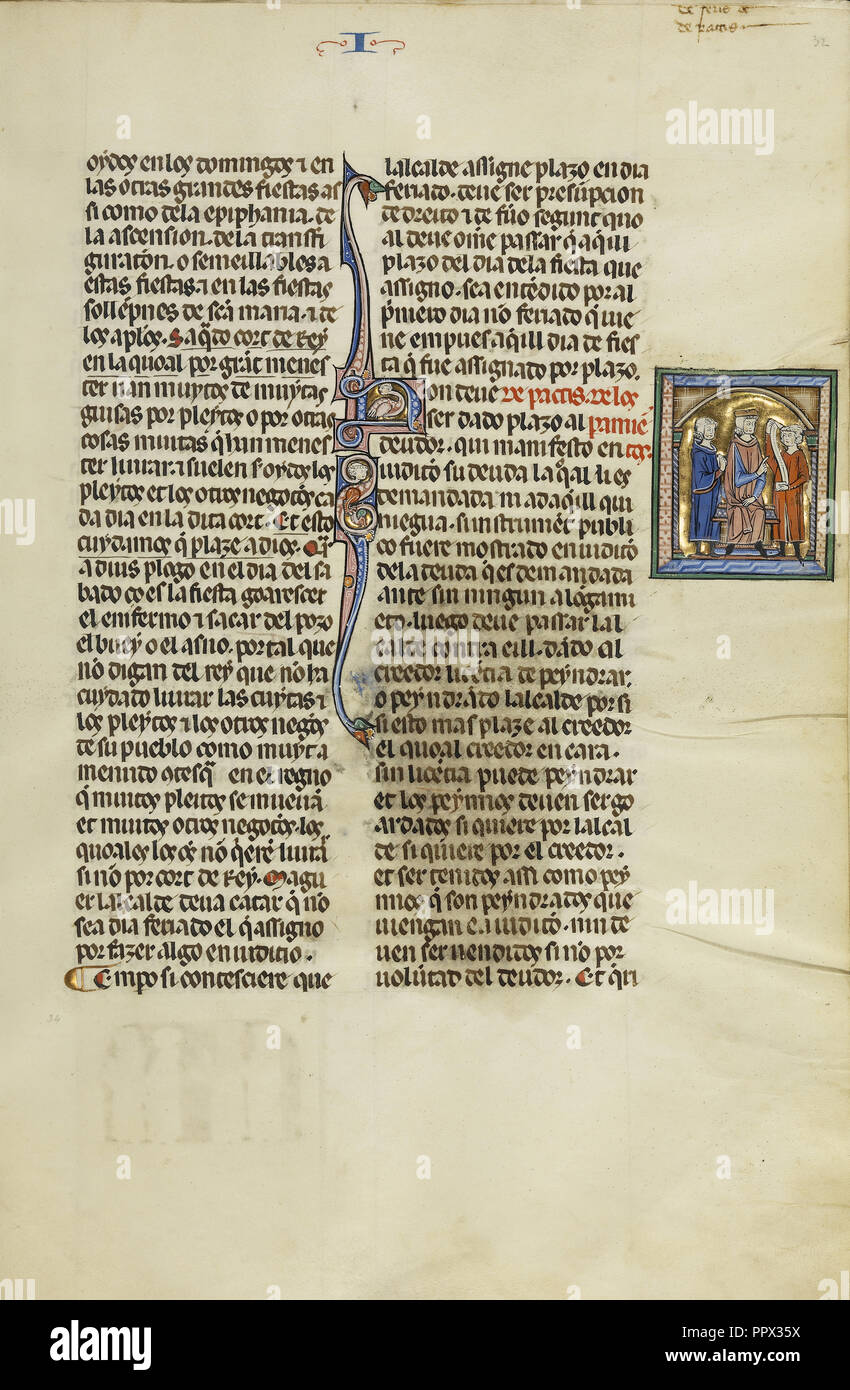 de feriis et
de pactis
32
I
oydos en los domingos ⁊ en
las otras grandes fiestas as
si como dela epiphania. de
la ascension. dela transfi
guration. o semeillables a
estas fiestas ⁊ en las fiestas
sollẽpnes de sc̃a maria. ⁊ de
los ap̃los. Saq̃do cort de Rey
en la quoal por grãt menes
ter uan muytos de muytas
guisas por pleytos o por otras
cosas muitas q̃ han menes
ter liurar ⁊ suelen s̕ oydos los
pleytos et los otros negocios ca
da dia en la dita cort. Et esto
cuydamos q̃ plaze a dios. Q̃r
a dius plogo en el dia del sa
bado co es la fiesta goarescer
el enfermo ⁊ sacar del pozo
el buey o el asno. por tal que
nõ digan del rey que nõ ha
cuydado liurar las cuytas ⁊
los pleytos ⁊ los otros negõs
de su pueblo como muyta
menudo contesq̃ en el regno
q̃ muitos pleitos se mueuã
et muitos otros negocios. los
quoales los os nõ q̃rẽ liurar
si nõ por cort de Rey. Magu
er lalcalde deua catar q̃ nõ
sea dia feriado el q̃ assigno
por fazer algo en iudicio.
Empo si contesciere que
lalcalde assigne plazo en dia
feriado. deue ser presũpcion
de dreito ⁊ de fuo segunt quo
al deue om̃e passar q̃ aqui
plazo del dia dela fiesta que
assigno. sea entẽdido por al
p̃mero dia nõ feriado q̃ uie
ne empues aq̃ill dia de fies
ta q̃ fue assignado por plazo.
Non deue De pactis. De los
ser dado plazo al paramiẽ
deudor. qui manifesto en tos.
iudicio su deuda la q̃al li es
demandada mas aq̃ill qui
niegua. si instrumẽt publi
co fuere mostrado en iudicio
dela deuda q̃ es demandada
ante sin ningun alõgami
ẽto. luego deue passar lal
calde contra eill. dãdo al
creedor licẽcia de peyndrar.
o peyndrãdo lalcalde por si
si esto mas plaze al creedor
el quoal creedor en cara.
sin licẽcia puede peyndrar
et los peynnos deuen ser go
ardados si quiere por lalcal
de si quiere por el creedor.
et ser tenidos assi como pey
nnos q̃ son peyndrados que
uiengan ea iudicio. nin de
uen ser uendidos si nõ por
uolũtad del deudor. Et q̃ri
34
alamy
Image ID: PPX35X
www.alamy.com